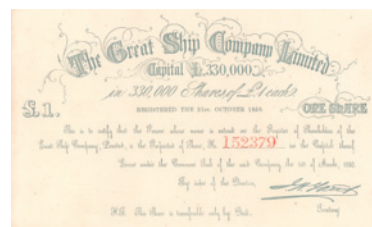 The Great Ship Company Limited
Capital £.330,000.
in 330,000 Shares of £1 each
£1. REGISTERED THE 21st. OCTOBER 1858. ONE SHARE
This is to certify that the Person whose name is entered on the Register of Shareholders of the
Great Ship Company, Limited, is the Proprietor of Share, No. 152379 in the Capital thereof
Given under the Common Seal of the said Company the 1st of March,
By order of the Directors,
N.B. This Share is transferable only by Deed. Secretary